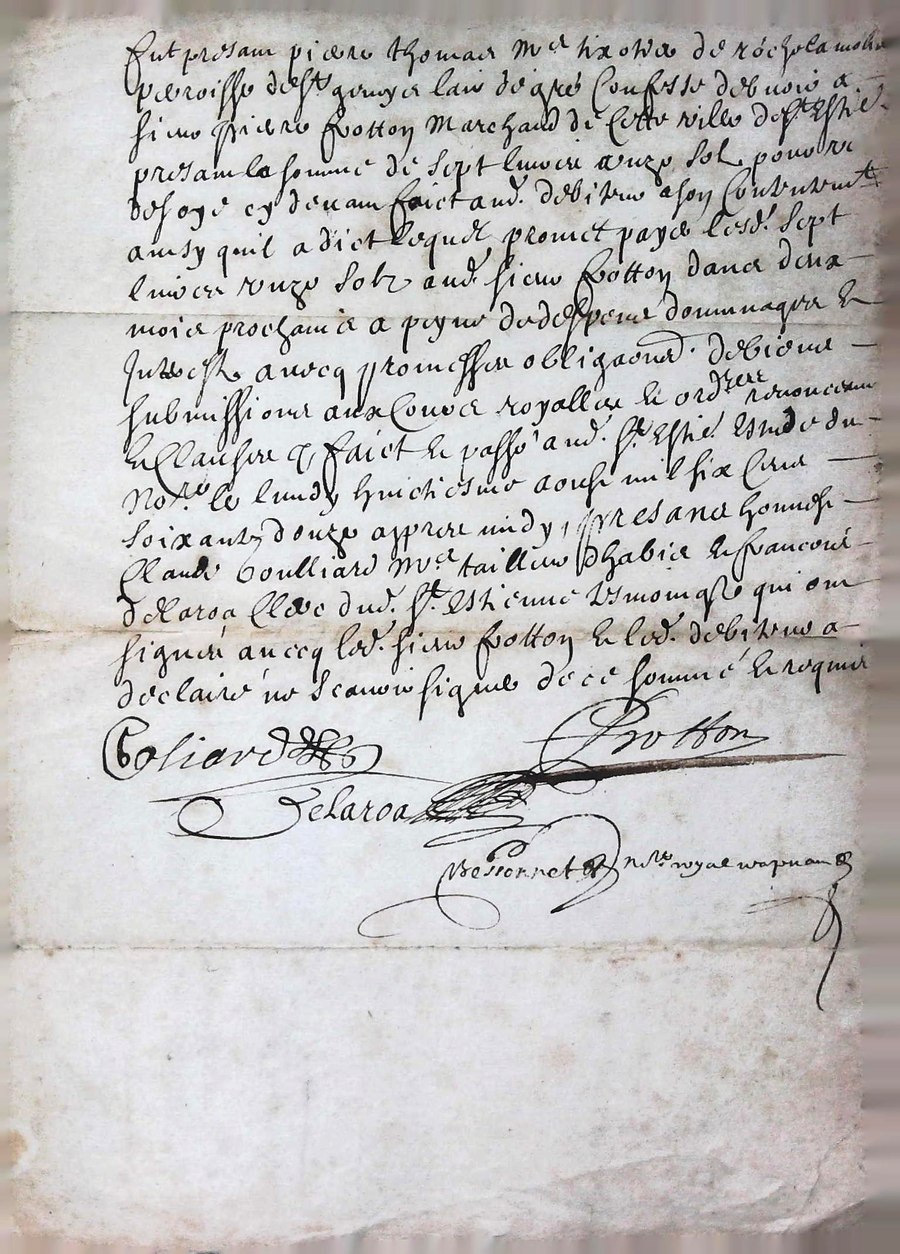 Fut presant pierre thomas Me tixotier de rochelamoliere
parroisse de St genyes lair de gré Confesse debvoir a
sieur pierre frotton Marchand de Cette ville de St Estie.
presant la somme de sept livres unze solz pour
de soye cy devant faict aud. debiteur a son Contentemt
ainsy quil a dict lequel promet payer lesd. sept
livres unze solz aud. sieur frotton dans deux
mois prochains a peyne de despens dommages et
Interestz avecq promesses obligaons. de biens
submissions aux Cours royalles et ordres renonceons
et Clauses q. faict et passé aud. St Estie. estude du
Nore. le lundy huictiesme aoust mil six Cens
soixante douze appres midy, presans honneste
Claude Colliard Me tailleur dhabis et francois
delaroa Clerc dud. St Estienne tesmoingz qui ont
signes avecq led. sieur frotton et led. debiteur a
declairé ne scavoir signer de ce sommé et requis
Coliard
Frotton
Delaroa
Bessonnet nore. royal